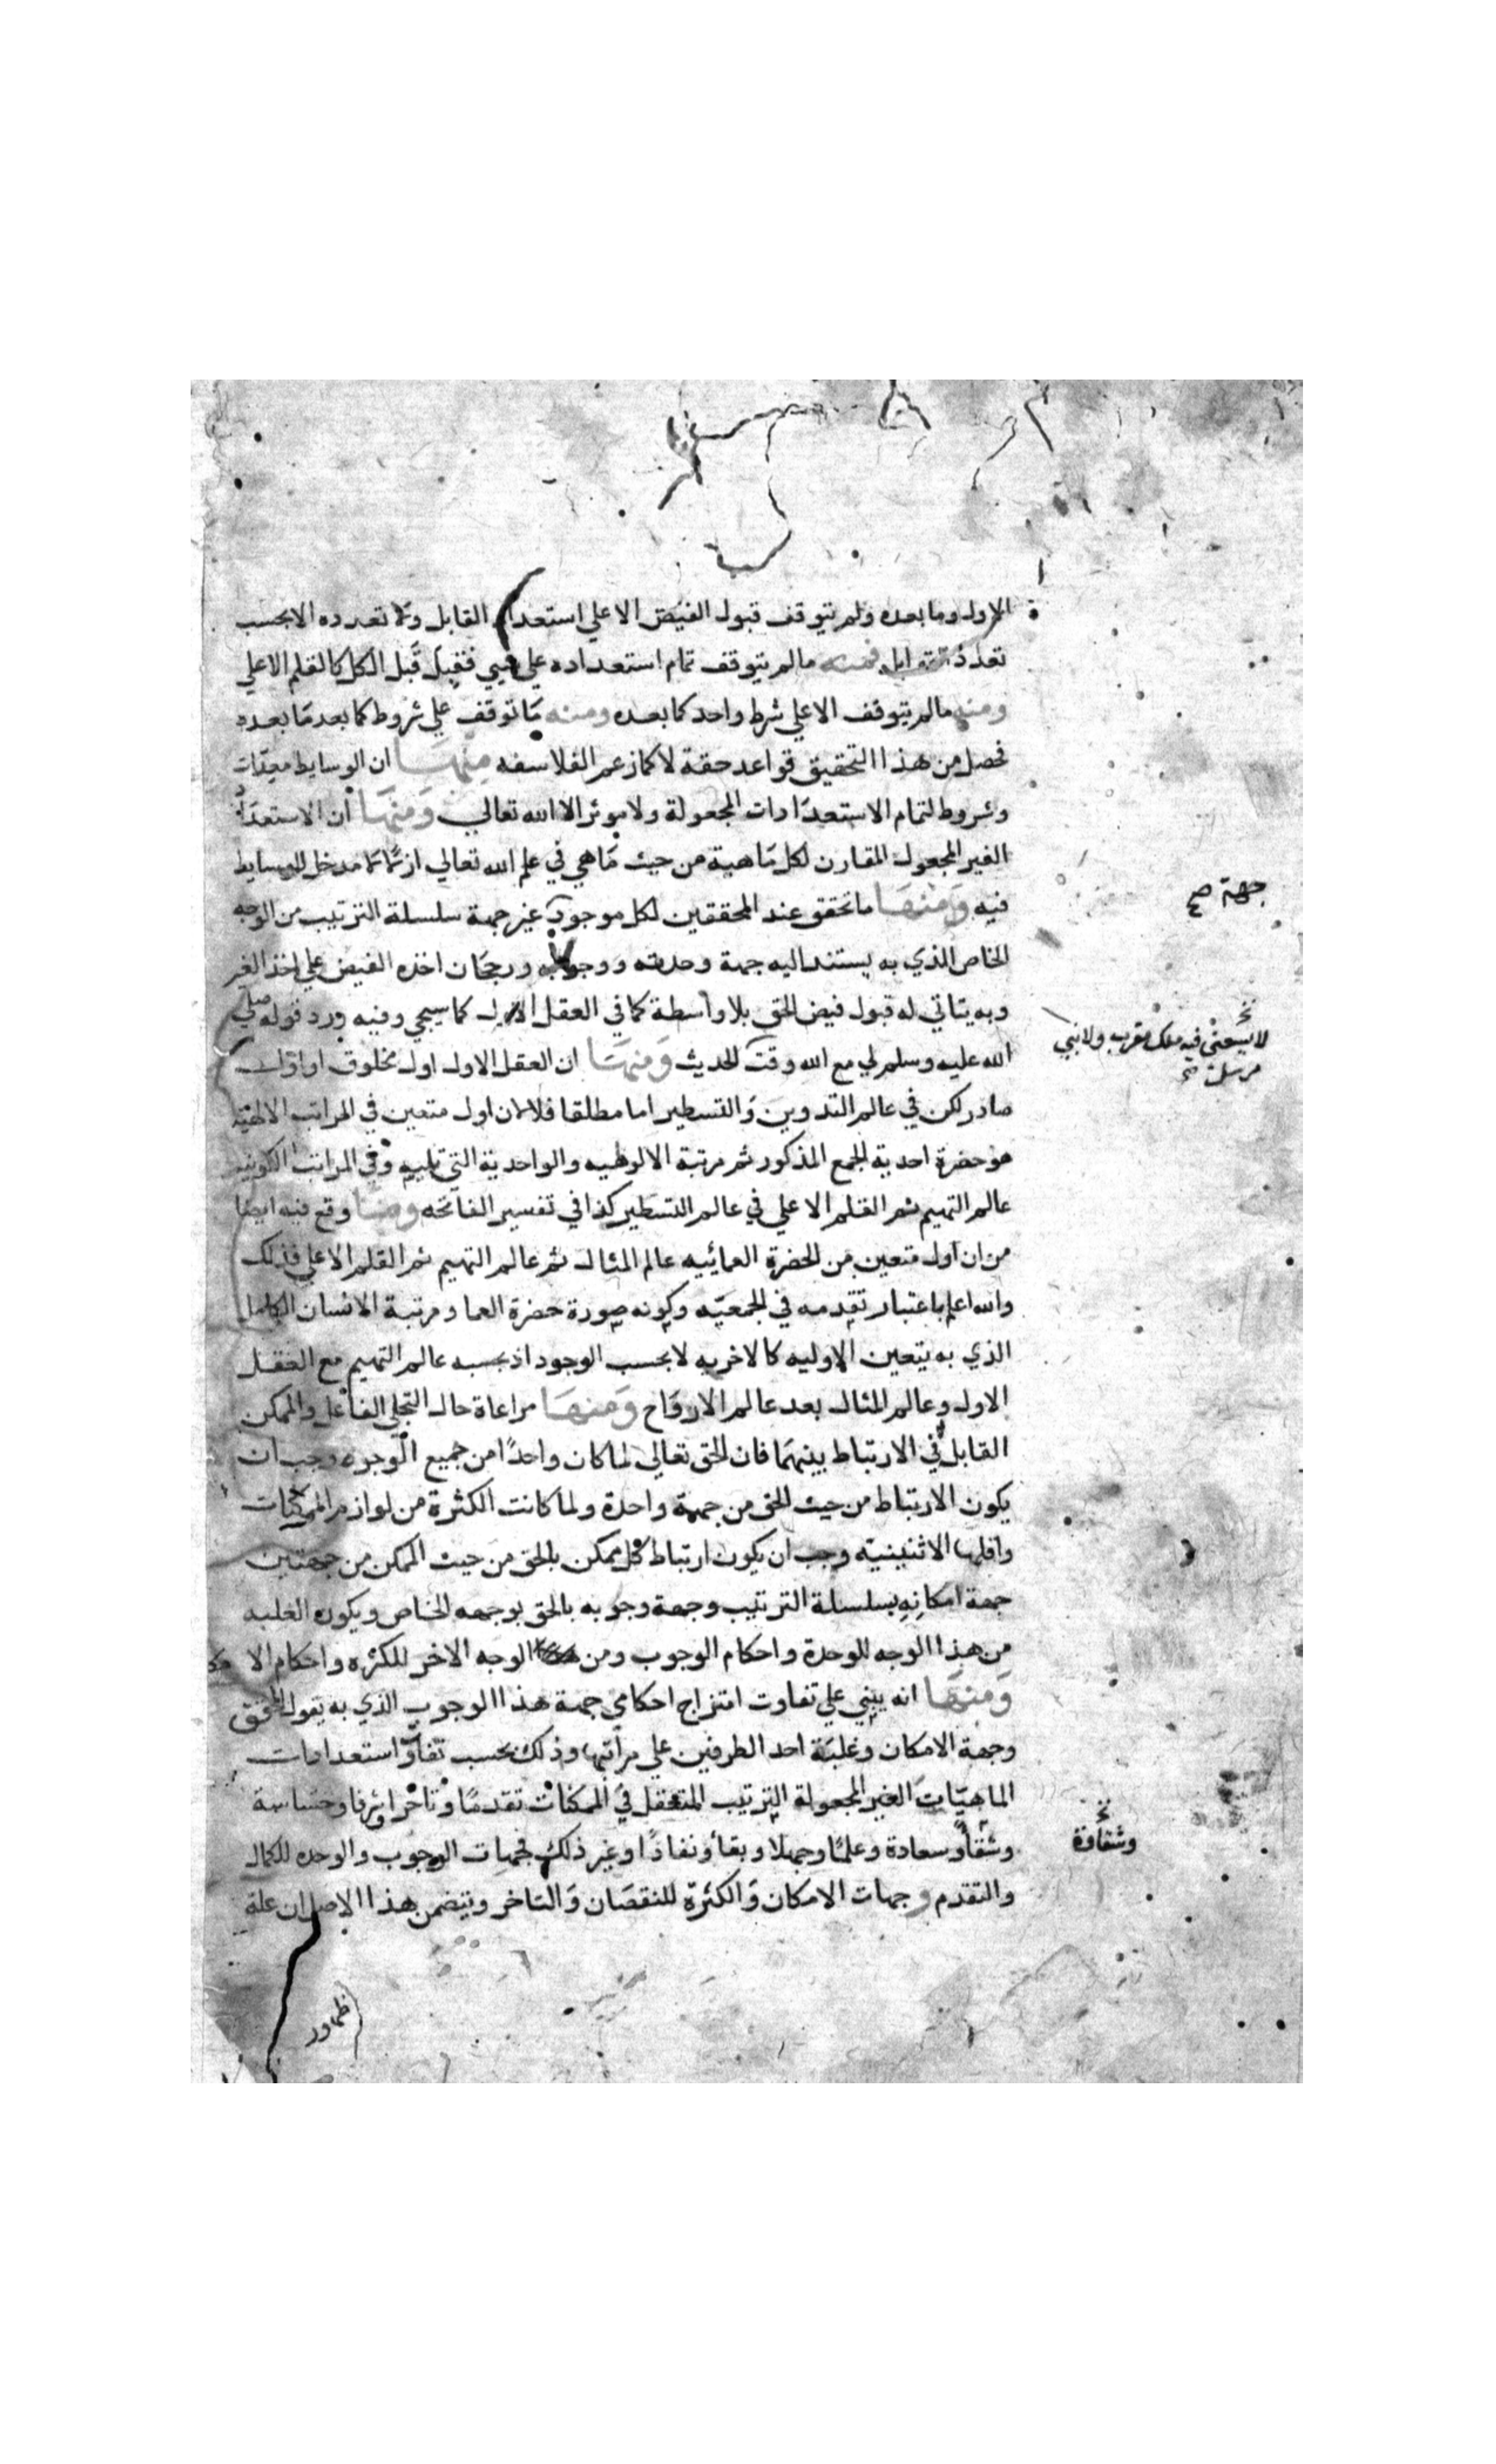 الاول وما بعده ولم يتوقف قبول الفيض الا علي استعداد القابل ولا تعدده الا بحسب
تعدد القوابل فمنه مالم يتوقف تمام استعداده علي شيي فقبل قبل الكل كالقلم الاعلي
ومنه مالم يتوقف الا علي شرط واحد كما بعده ومنه ما توقف علي شروط كما بعد ما بعده
فحصل من هذا التحقيق قواعد حقة لا كما زعم الفلاسفه منها ان الوسايط معدات
وشروط لتمام الاستعدادات المجعولة ولا موثر الا الله تعالي ومنها ان الاستعداد
الغير المجعول المقارن لكل ماهية من حيث ما هي في علم الله تعالي ازلا مدخل للوسايط
فيه ومنها ما تحقق عند المحققين لكل موجود غير جهة سلسلة الترتيب من الوجه
جهة صح
الخاص الذي به يستند اليه جهة وحدته ووجوبه ورجحان اخذه الفيض علي اخذ الغير
وبه يتاتي له قبول فيض الحق بلا واسطة كما في العقل الاول كما سيجي وفيه ورد قوله صلي
الله عليه وسلم لي مع الله وقت الحديث ومنها ان العقل الاول اول مخلوق او اول
لا يسعني فيه ملك مقرب ولا نبي
مرسل صح
صادر لكن في عالم التدوين والتسطير اما مطلقا فلا لان اول متعين في المراتب الالهية
هو حضرة احدية الجمع المذكور ثم مرتبة الالوهيه والواحدية التي تليه وفي المراتب الكونيه
عالم التهيم ثم القلم الاعلي في عالم التسطير كذا في تفسير الفاتحه وما وقع فيه ايضا
من ان اول متعين من الحضرة العمائيه عالم المثال ثم عالم التهيم ثم القلم الاعلي فذلك
والله اعلم باعتبار تقدمه في الجمعيه وكونه صورة حضرة العما ومرتبة الانسان الكامل
الذي به يتعين الاوليه كالاخريه لا بحسب الوجود اذ بحسبه عالم التهيم مع العقل
الاول وعالم المثال بعد عالم الارواح ومنها مراعاة حال التجلي الفاعل والممكن
القابل في الارتباط بينهما فان الحق تعالي لما كان واحدا من جميع الوجوه وجب ان
يكون الارتباط من حيث الحق من جهة واحدة ولما كانت الكثرة من لوازم الممكنات
واقلها الاثنينيه وجب ان يكون ارتباط كل ممكن بالحق من حيث الممكن من جهتين
جهة امكانه بسلسلة الترتيب وجهة وجوبه بالحق بوجهه الخاص ويكون الغلبه
من هذا الوجه للوحدة واحكام الوجوب ومن الوجه الاخر للكثره واحكام الامكا
ومنها انه يبني علي تفاوت امتزاج احكامي جهة هذا الوجوب الذي به يقول المحقق
وجهة الامكان وغلبة احد الطرفين علي مراتبها وذلك بحسب تفاوت استعدادات
الماهيات الغير المجعولة الترتيب المتعقل في الممكنات تقدما وتاخرا وشرفا وخساسة
وشقاو سعادة وعلما وجهلا وبقا ونفادا وغير ذلك فجهات الوجوب والوحده للكمال
وشقاوة
والتقدم وجهات الامكان والكثرة للنقصان والتاخر ويتضمن هذا الاصل ان علة
ظهور